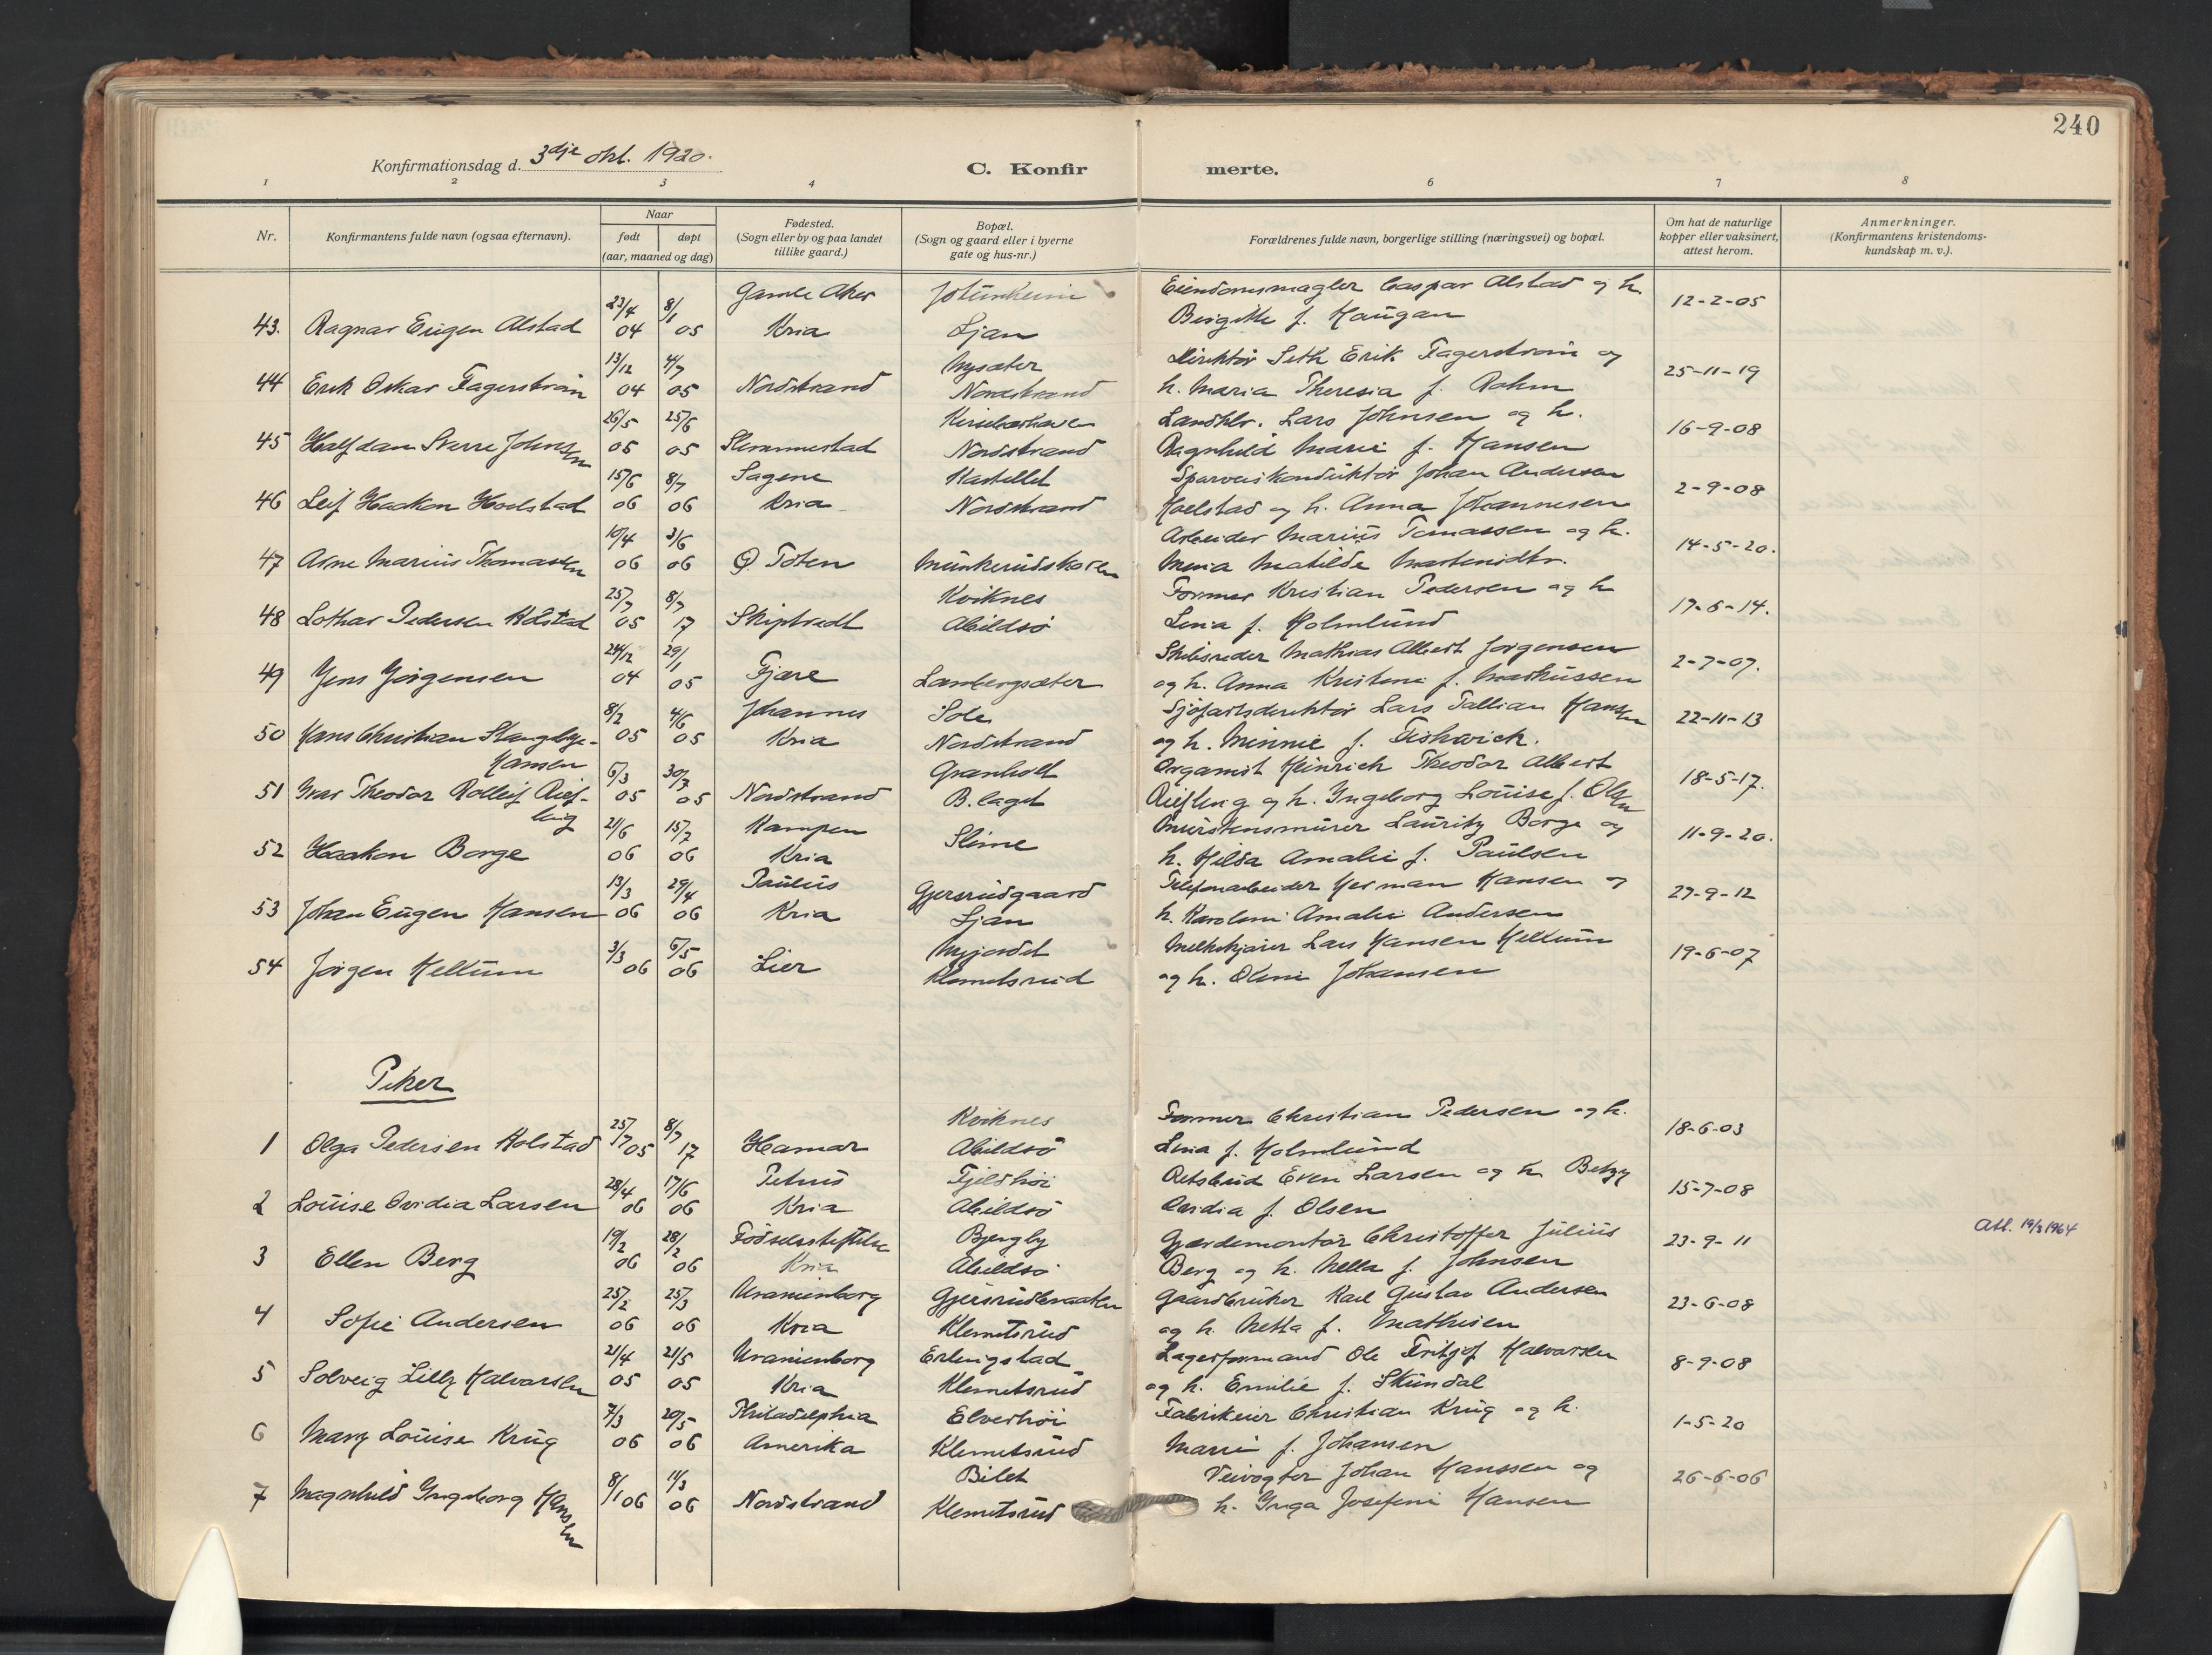 240
Konfirmationsdag d. 3dje okt. 1920.
C. Konfirmerte.
1 2 3 4 6 7 8
Nr.
Konfirmantens fulde navn (ogsaa efternavn).
Naar
født døpt
(aar, maaned og dag)
Fødested.
(Sogn eller by og paa landet
tillike gaard.)
Bopæl.
(Sogn og gaard eller i byerne
gate og hus-nr.)
Forældrenes fulde navn, borgerlige stilling (næringsvei) og bopæl.
Om hat de naturlige
kopper eller vaksinert,
attest herom.
Anmerkninger.
(Konfirmantens kristendoms-
kundskap m. v.).
23/4 8/1 Gamle Aker Jotunheim Eiendomsmægler Caspar Alstad og h. 12-2-05
43. Ragnar Eugen Alstad 04 05 Kria Ljan Bergitte f. Haugan
13/12 4/7 Nysæter Direktør Seth Erik Fagerstrøm og 25-11-19
44 Erik Oskar Fagerstrøm 04 05 Nordstrand Nordstrand h. Maria Theresia f. Rohm
26/5 25/6 Landhlr. Lars Johnsen og h. 16-9-08
45 Halfdan Sverre Johnsen 05 05 Slemmestad Nordstrand Ragnhild Marie f. Hansen
15/6 8/7 Sagene Kastellet Sporveiskonduktør Johan Andersen 2-9-08
46 Leif Haakon Hoelstad 06 06 Kria Nordstrand Hoelstad og h. Anna Johannesen
10/4 3/6 Arbeider Marius Tomassen og h. 14-5-20.
47 Arne Marius Thomassen 06 06 Ø. Toten Munkerudskolen Maria Matilde Martinidtr.
25/7 8/7 Kviknes Former Kristian Pedersen og h 17-6-14.
48 Lothar Pedersen Holstad 05 17 Skiptvedt Abildsø Lina f. Holmlund
24/12 29/1 Skibsreder Mathias Albert Jørgensen 2-7-07.
49 Jens Jørgensen 04 05 Fjære Lambergsæter og h. Anna Kristine f. Markussen
8/2 4/6 Johannes Sole Sjøfartsdirektør Lars Tallian Hansen 22-11-13
50 Hans Christian Slangbye- 05 05 Kria Nordstrand og h. Minnie f. Fishwick.
Hansen
6/3 30/7 Granholt Organist Heinrich Theodor Albert 18-5-17.
51 Ivar Theodor Rolleif Rief- 05 05 Nordstrand B.laget Riefling og h. Ingeborg Louise f. Olsen
ling
21/6 15/7 Kampen Slime Murstensmurer Lauritz Borge og 11-9-20.
52 Haakon Borge 06 06 Kria h. Hilda Amalie f. Paulsen
13/3 29/4 Paulus Gjersrudgaard Telefonarbeider Herman Hansen og 27-9-12
53 Johan Eugen Hansen 06 06 Kria Ljan h. Karoline Amalie Andersen
3/3 6/5 Nyjordet Melkekjører Lars Hansen Hellum 19-6-07
54 Jørgen Hellum 06 06 Lier Klemetsrud og h. Oline Johansen
Piker
25/7 8/7 Kviknes Former Christian Pedersen og h. 18-6-03
1 Olga Pedersen Holstad 05 17 Hamar Abildsø Lina f. Holmlund
28/4 17/6 Petrus Fjeldhøi Retsbud Even Larsen og h. Betzy 15-7-08
2 Louise Ovidia Larsen 06 06 Kria Abildsø Ovidia f. Olsen
19/2 28/2 Fødselsstiftelse Bjergby Gjerdemontør Christoffer Julius 23-9-11 Att. 19/3 1964
3 Ellen Berg 06 06 Kria Abildsø Berg og h. Nella f. Johnsen
25/2 25/3 Uranienborg Gjersrudbraaten Gaardbruker Karl Gustav Andersen 23-6-08
4 Sofie Andersen 06 06 Kria Klemetsrud og h. Netta f. Mathisen
21/4 21/5 Uranienborg Erlingstad Lagerformand Ole Fritjof Halvorsen 8-9-08
5 Solveig Lilly Halvorsen 05 05 Kria Klemetsrud og h. Emilie f. Skundal
7/3 20/5 Philadelphia Elverhøi Fabrikeier Christian Krug og h. 1-5-20
6 Mary Louise Krug 06 06 Amerika Klemetsrud Marie f. Johansen
8/1 11/3 Bilet Veivogter Johan Hanssen og 26-6-06
7 Magnhild Ingeborg Hanssen 06 06 Nordstrand Klemetsrud h. Inga Josefine Hansen